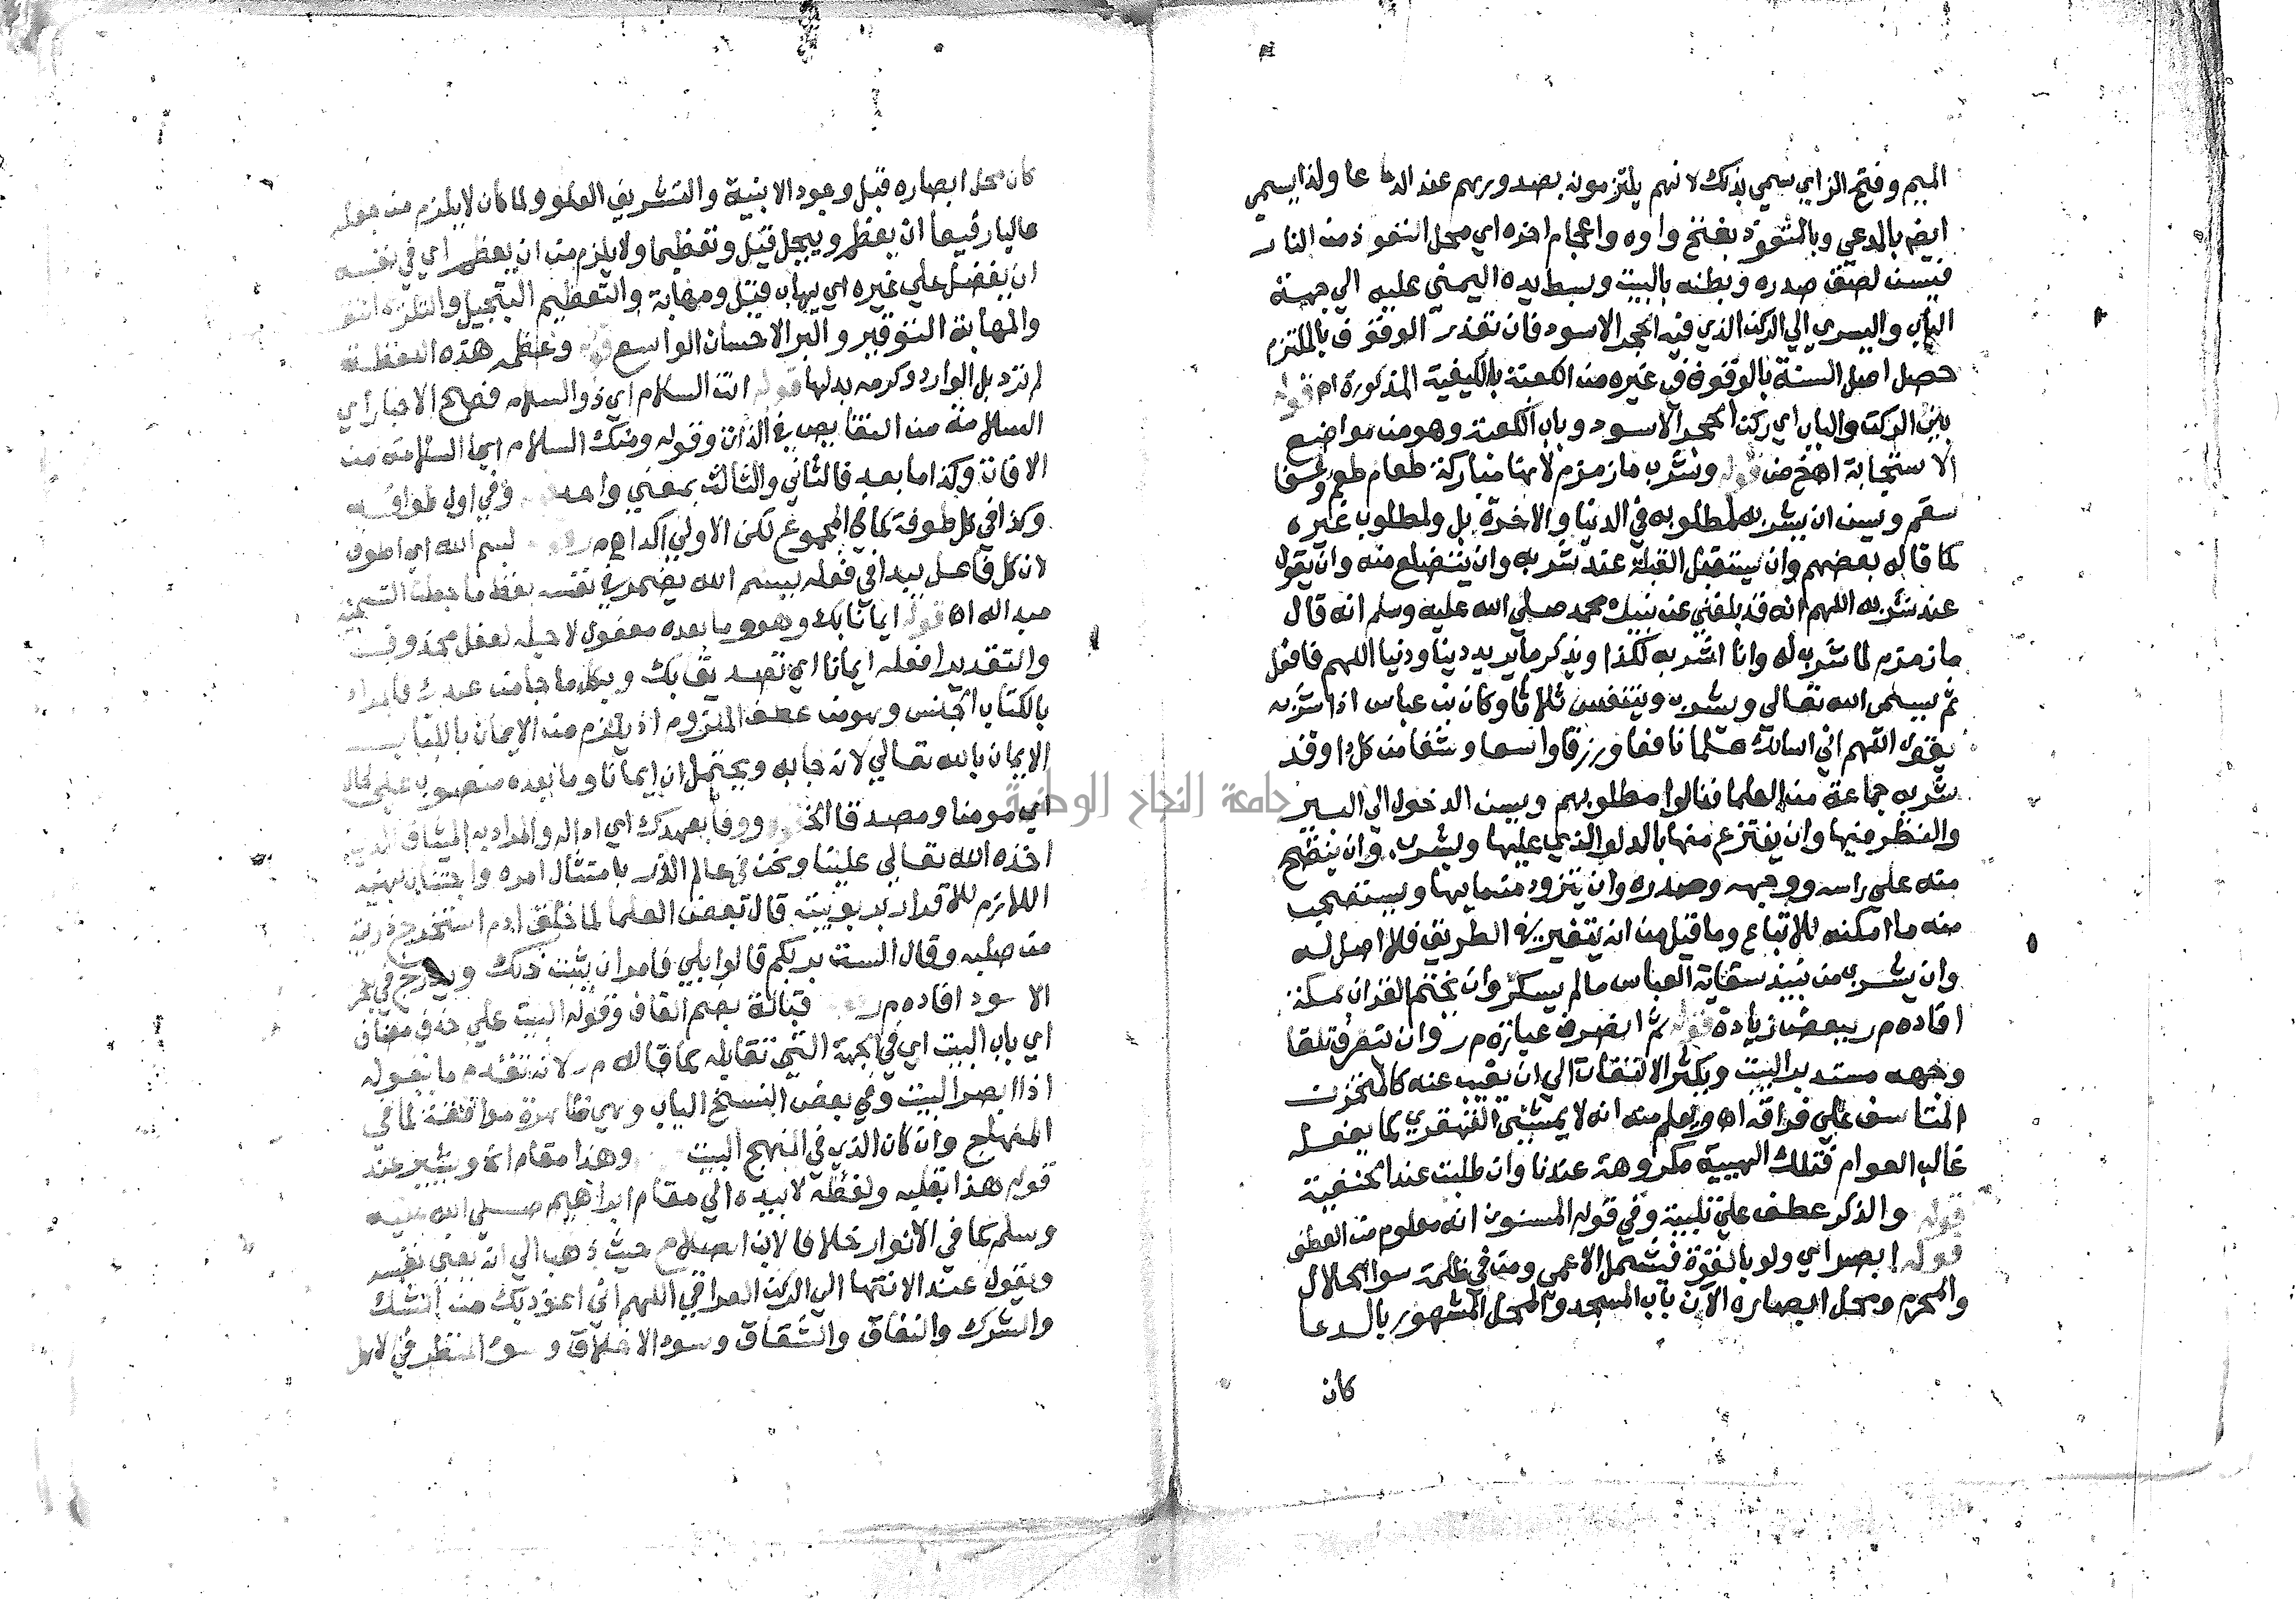 الميم وفتح الزاي سمي بذلك لانهم يلتزمونه بصدورهم عند الدعا ولذا يسمي
ايضا بالمدعي وبالمتعوذ بفتح واوه واعجام اخره اي محل التعوذ من النار
فيسن لصق صدره وبطنه بالبيت وبسط يده اليمني عليه الي جهة
الباب واليسري الي الركن الذي فيه الحجر الاسود فان تعذر الوقوف بالملتزم
حصل اصل السنة بالوقوف في غيره من الكعبة بالكيفية المذكورة اه قوله
بين الركن والباب اي ركن الحجر الاسود وباب الكعبة وهو من مواضع
الاستجابة اهخض قوله وشرب ما زمزم لانها مباركة طعام طعم وشفا
سقم ويسن ان يشربه لمطلوبه في الدنيا والاخرة بل ولمطلوب غيره
كما قاله بعضهم وان يستقبل القبلة عند شربه وان يتضلع منه وان يقول
عند شربه اللهم انه قد بلغني عن نبيك محمد صلي الله عليه وسلم انه قال
ما زمزم لما شرب له وانا اشربه لكذا ويذكر ما يريد دينا ودنيا اللهم فافعل
ثم يسمي الله تعالي ويشرب ويتنفس ثلاثا وكان بن عباس اذا شربه
يقول اللهم اني اسالك علما نافعا ورزقا واسعا وشفا من كل داوقد
شربه جماعة من العلما فنالوا مطلوبهم ويسن الدخول الي البير
والنظر فيها وان ينتزع منها بالدلو الذي عليها ويشرب وان ينضح
منه علي راسه ووجهه وصدره وان يتزود من مايها ويستصحب
منه ما امكنه للاتباع وما قيل من انه يتغير في الطريق فلا اصل له
وان يشرب من نبيذ سقاية العباس ما لم يسكر وان يختم القران بمكة
افاده م ر ببعض زيادة قوله ثم انصرف عبارة م ر وان ينصرف تلقا
وجهه مستدبر البيت ويكثر الالتفات الي ان يغيب عنه كالمتحزن
المتاسف علي فراقه اه ويعلم منه انه لا يمشي القهقري كما يفعله
غالب العوام فتلك الهيية مكروهة عندنا وان طلبت عند الحنفية
قوله والذكر عطف علي تلبية وفي قوله المسنون انه معلوم من العطف
قوله ابصر اي ولو بالقوة فتشمل الاعمي ومن في ظلمة سوا الحلال
والمحرم ومحل ابصاره الان باب المسجد والمحل المشهور بالدعا
كان
كان محل ابصاره قبل وجود الابنية والتشريف العلو ولما كان لا يلزم من جعله
عاليا رفيعا ان يعظم ويبجل قيل وتعظيما ولا يلزم من ان يعظم اي في نفسه
ان يفضل علي غيره اي يهاب قيل ومهابة والتعظيم التبجيل والتكرمة
والمهابة التوقير والبر الاحسان الواسع قوله وعظمه هذه اللفظة
لم ترد بل الوارد وكرمه بدلها قوله انت السلام اي ذو السلام فصح الاخبار اي
السلامة من النقايص في الذات وقوله ومنك السلام اي السلامة من
الافات وكذا ما بعد فالثاني والثالث بمعني واحد وفي اول طوافه
وكذا في كل طوفة كما في المجموع لكن الاولي اكد اه م ر قوله بسم الله اي اطوف
لان كل فاعل يبدا في فعله ببسم الله يضمر في نفسه لفظ ما جعلت التسمية
مبدا له اه قوله ايمانا بك وهو وما بعده مفعول لاجله لفعل محذوف
والتقدير افعله ايمانا اي تصديقا بك وبكل ما جا من عندك فالمراد
بالكتاب الجنس وهو من عطف الملزوم اذ يلزم من الايمان بالكتاب
الايمان بالله تعالي لانه جا به ويحتمل ان ايمانا وما بعده منصوب علي الحال
اي مومنا ومصدقا الخ قوله ووفا بعهدك اي ادا له والمراد به الميثاق الذي
اخذه الله تعالي علينا ونحن في عالم الذر بامتثال امره واجتناب نهيه
اللازم للاقرار بربوبيته قال بعض العلما لما خلق ادم استخرج ذريته
من صلبه وقال الست بربكم قالوا بلي فامر ان يثبت ذلك ويدرج في الحجر
الاسود افاده م ر قوله قبالة بضم القاف وقوله البيت علي حذف مضاف
اي باب البيت اي في الجهة التي تقابله كما قاله م ر لانه تقدم ما يقوله
اذا ابصر البيت وفي بعض النسخ الباب وهي ظاهرة موافقة لما في
المنهاج وان كان الذي في المنهج البيت وهذا مقام اه ويشير عند
قوله هذا بقلبه ولفظه لا بيده الي مقام ابراهيم صلي الله عليه
وسلم كما في الانوار خلافا لابن الصلاح حيث ذهب الي انه يعني نفسه
ويقول عند الانتها الي الركن العراقي اللهم اني اعوذ بك من الشك
والشرك والنفاق والشقاق وسوء الاخلاق وسوء المنظر في الاهل